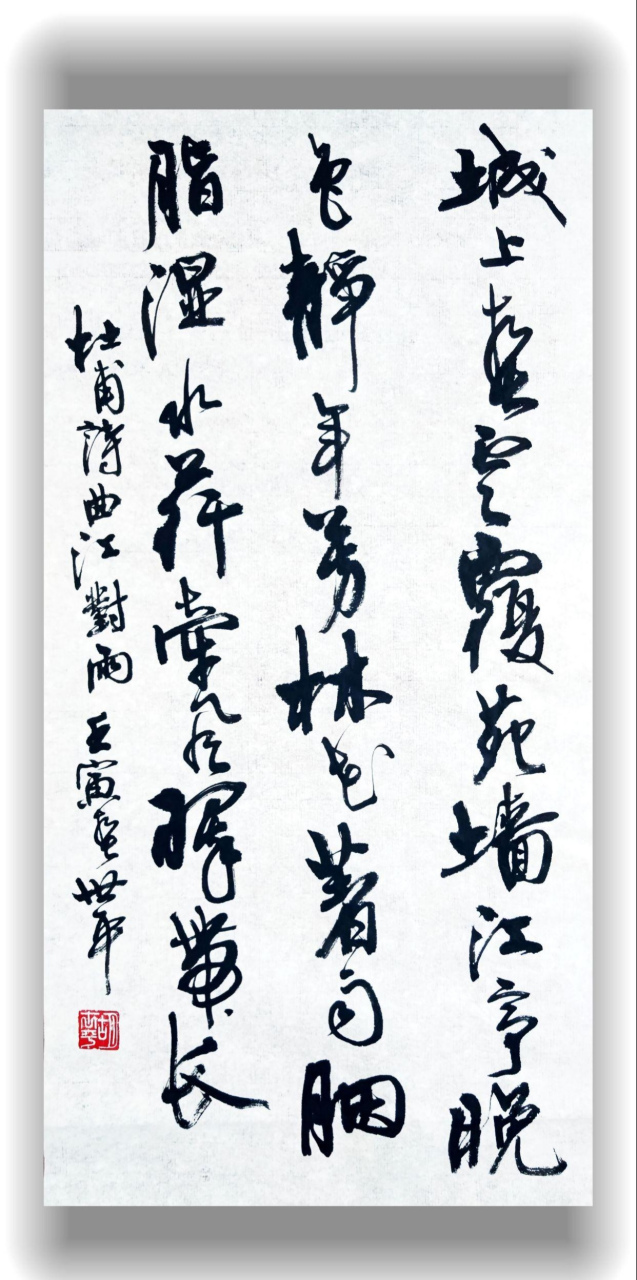 城上春云覆苑墙江亭晚
色靜年芳林花著雨胭
脂湿水荇牽风翠帶长
杜甫詩曲江對雨 壬寅春世平